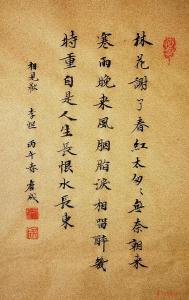 林花謝了春紅太匆〻無奈朝来
寒雨晚来風胭脂淚相留醉幾
時重自是人生長恨水長東
相見歡 李煜 丙午春